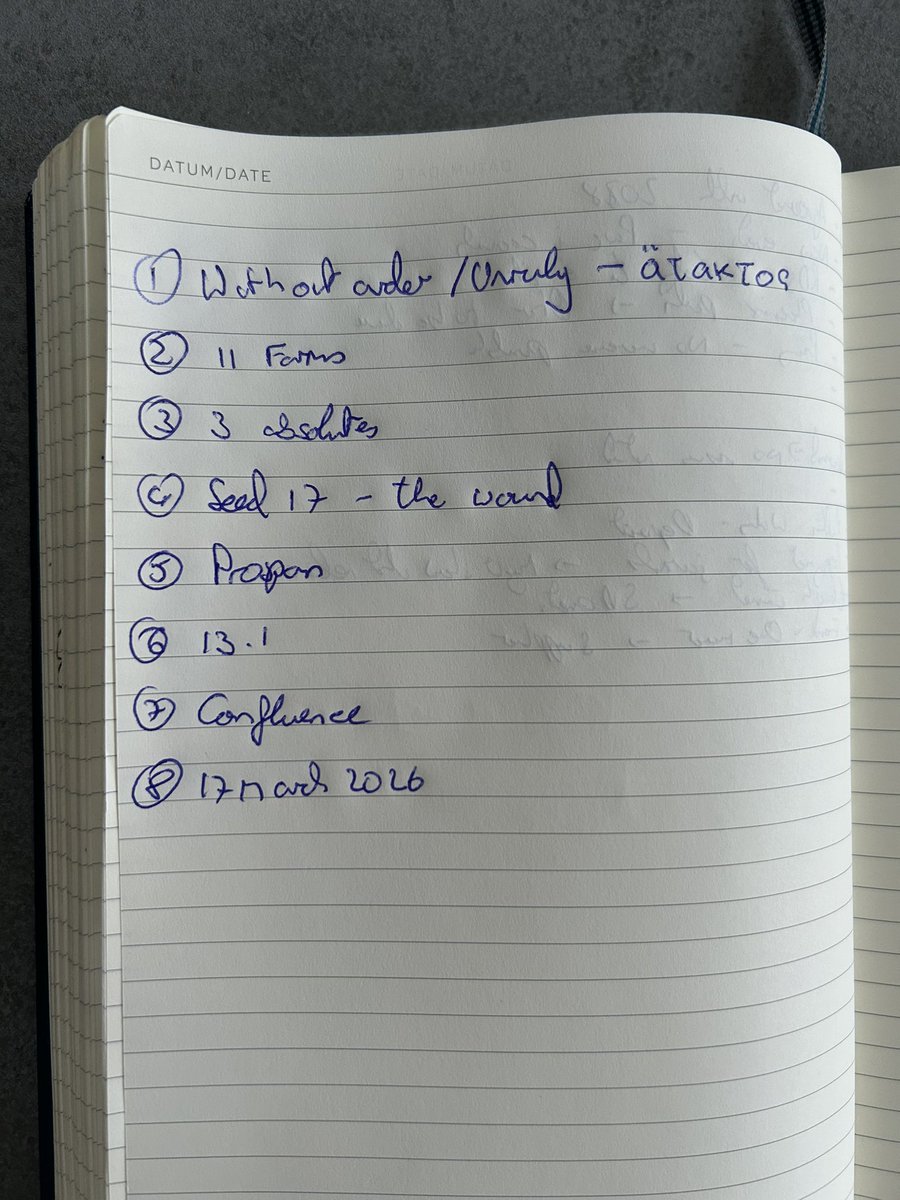 DATUM/DATE
① Without order / Unruly – ἄτακτος
② 11 Forms
③ 3 absolutes
④ Seed 17 – the wound
⑤ Propan
⑥ 13.1
⑦ Confluence
⑧ 17 March 2026